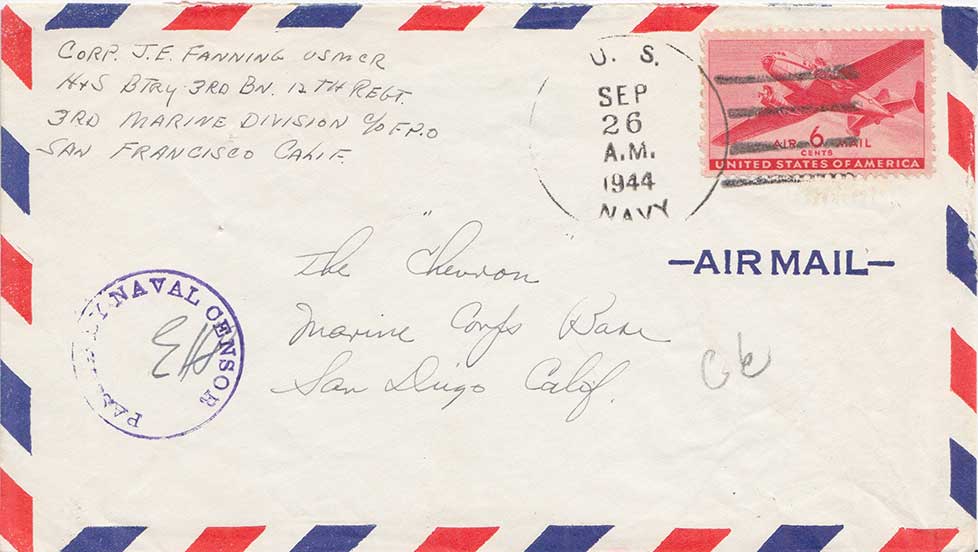 CORP. J.E. FANNING USMCR
H+S BTRY 3RD BN. 12TH REGT.
3RD MARINE DIVISION C/O F.P.O
SAN FRANCISCO CALIF.
U. S.
SEP
26
A.M.
1944
NAVY
AIR 6 MAIL
CENTS
UNITED STATES OF AMERICA
AIR MAIL
The "Chevron
Marine Corps Base
San Diego Calif.
PASSED BY NAVAL CENSOR